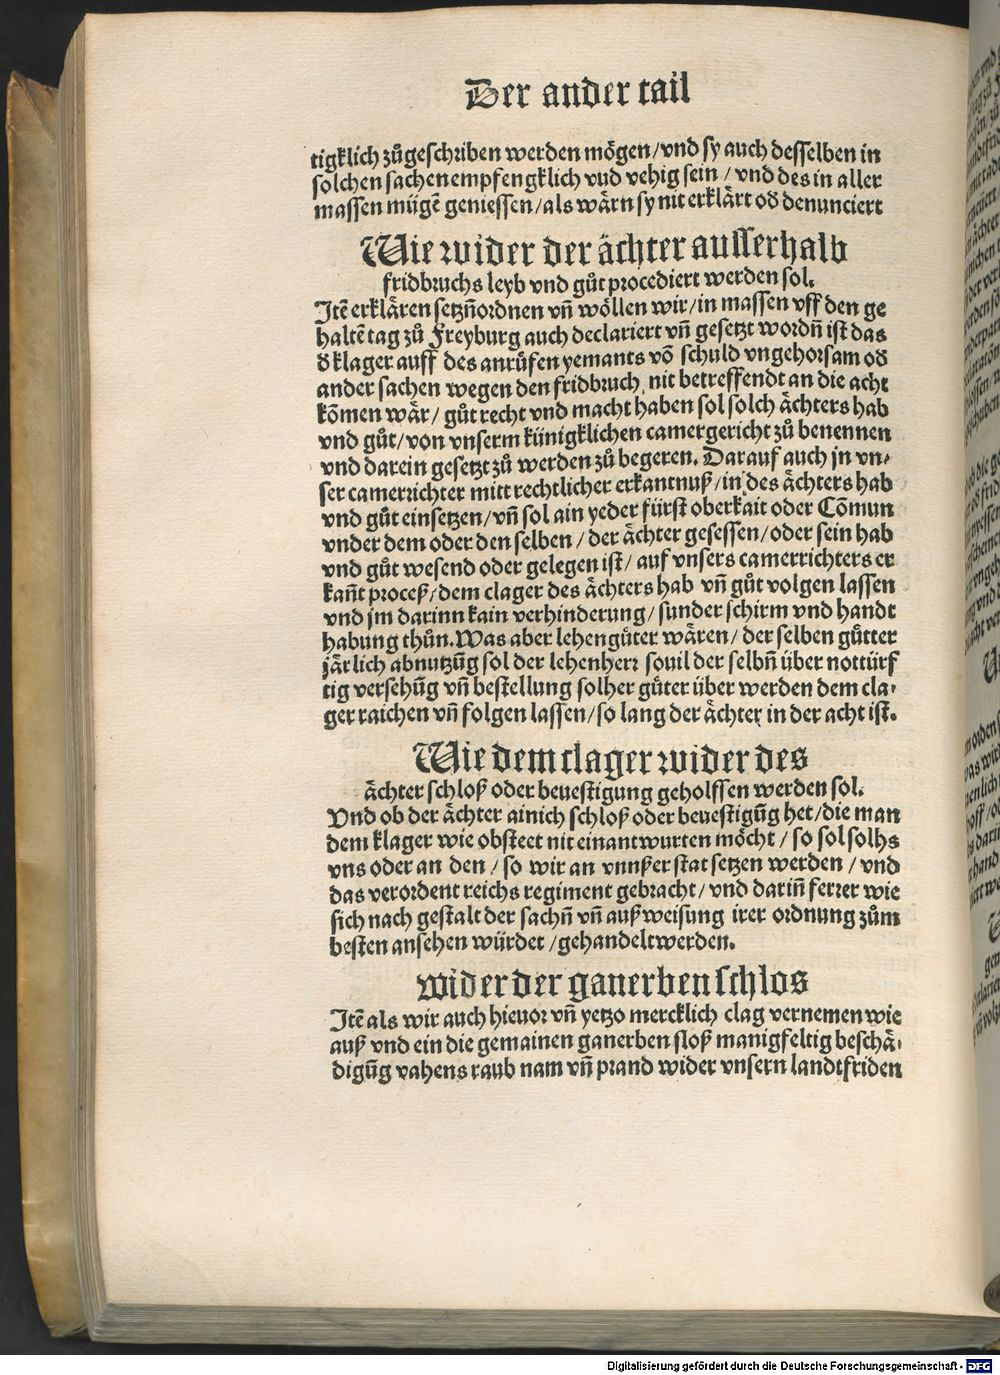 Der ander tail
tigklich zůgeschriben werden mögen/vnd sy auch desselben in
solchen sachen empfengklich vud vehig sein / vnd des in aller
massen mügē geniessen/als wārn sy nit erklärt oď denunciert
Wie wider der ächter ausserhalb
fridbruchs leyb vnd gůt procediert werden sol.
Itē erklären setzn̄ ordnen vn̄ wöllen wir/in massen vff den ge
haltē tag zů Freyburg auch declariert vn̄ gesetzt wordn̄ ist das
ď klager auff des anrůfen yemants vō schuld vngehorsam oď
ander sachen wegen den fridbruch nit betreffendt an die acht
kōmen wär/ gůt recht vnd macht haben sol solch ächters hab
vnd gůt/von vnserm künigklichen camergericht zů benennen
vnd darein gesetzt zů werden zů begeren. Darauf auch jn vn-
ser camerrichter mitt rechtlicher erkantnuß/in des ächters hab
vnd gůt einsetzen/vn̄ sol ain yeder fürst oberkait oder Cōmun
vnder dem oder den selben / der ächter gesessen/oder sein hab
vnd gůt wesend oder gelegen ist/ auf vnsers camerrichters er
kan̄t proceß/dem clager des ächters hab vn̄ gůt volgen lassen
vnd jm darinn kain verhinderung/ sunder schirm vnd handt
habung thůn. Was aber lehengüter wären/ der selben gůtter
järlich abnutzūg sol der lehenherr souil der selbn̄ über nottürf
tig versehūg vn̄ bestellung solher gůter über werden dem cla-
ger raichen vn̄ folgen lassen/so lang der ächter in der acht ist.
Wie dem clager wider des
ächter schloß oder beuestigung geholffen werden sol.
Vnd ob der ächter ainich schloß oder beuestigūg het/die man
dem klager wie obsteet nit einantwurten möcht / so sol solhs
vns oder an den / so wir an vnnßer stat setzen werden / vnd
das verordent reichs regiment gebracht/ vnd darin̄ ferrer wie
sich nach gestalt der sachn̄ vn̄ außweisung irer ordnung zům
besten ansehen würdet /gehandelt werden.
wider der ganerben schlos
Itē als wir auch hieuor vn̄ yetzo mercklich clag vernemen wie
auß vnd ein die gemainen ganerben sloß manigfeltig beschä-
digūg vahens raub nam vn̄ prand wider vnsern landtfriden
Digitalisierung gefördert durch die Deutsche Forschungsgemeinschaft - DFG